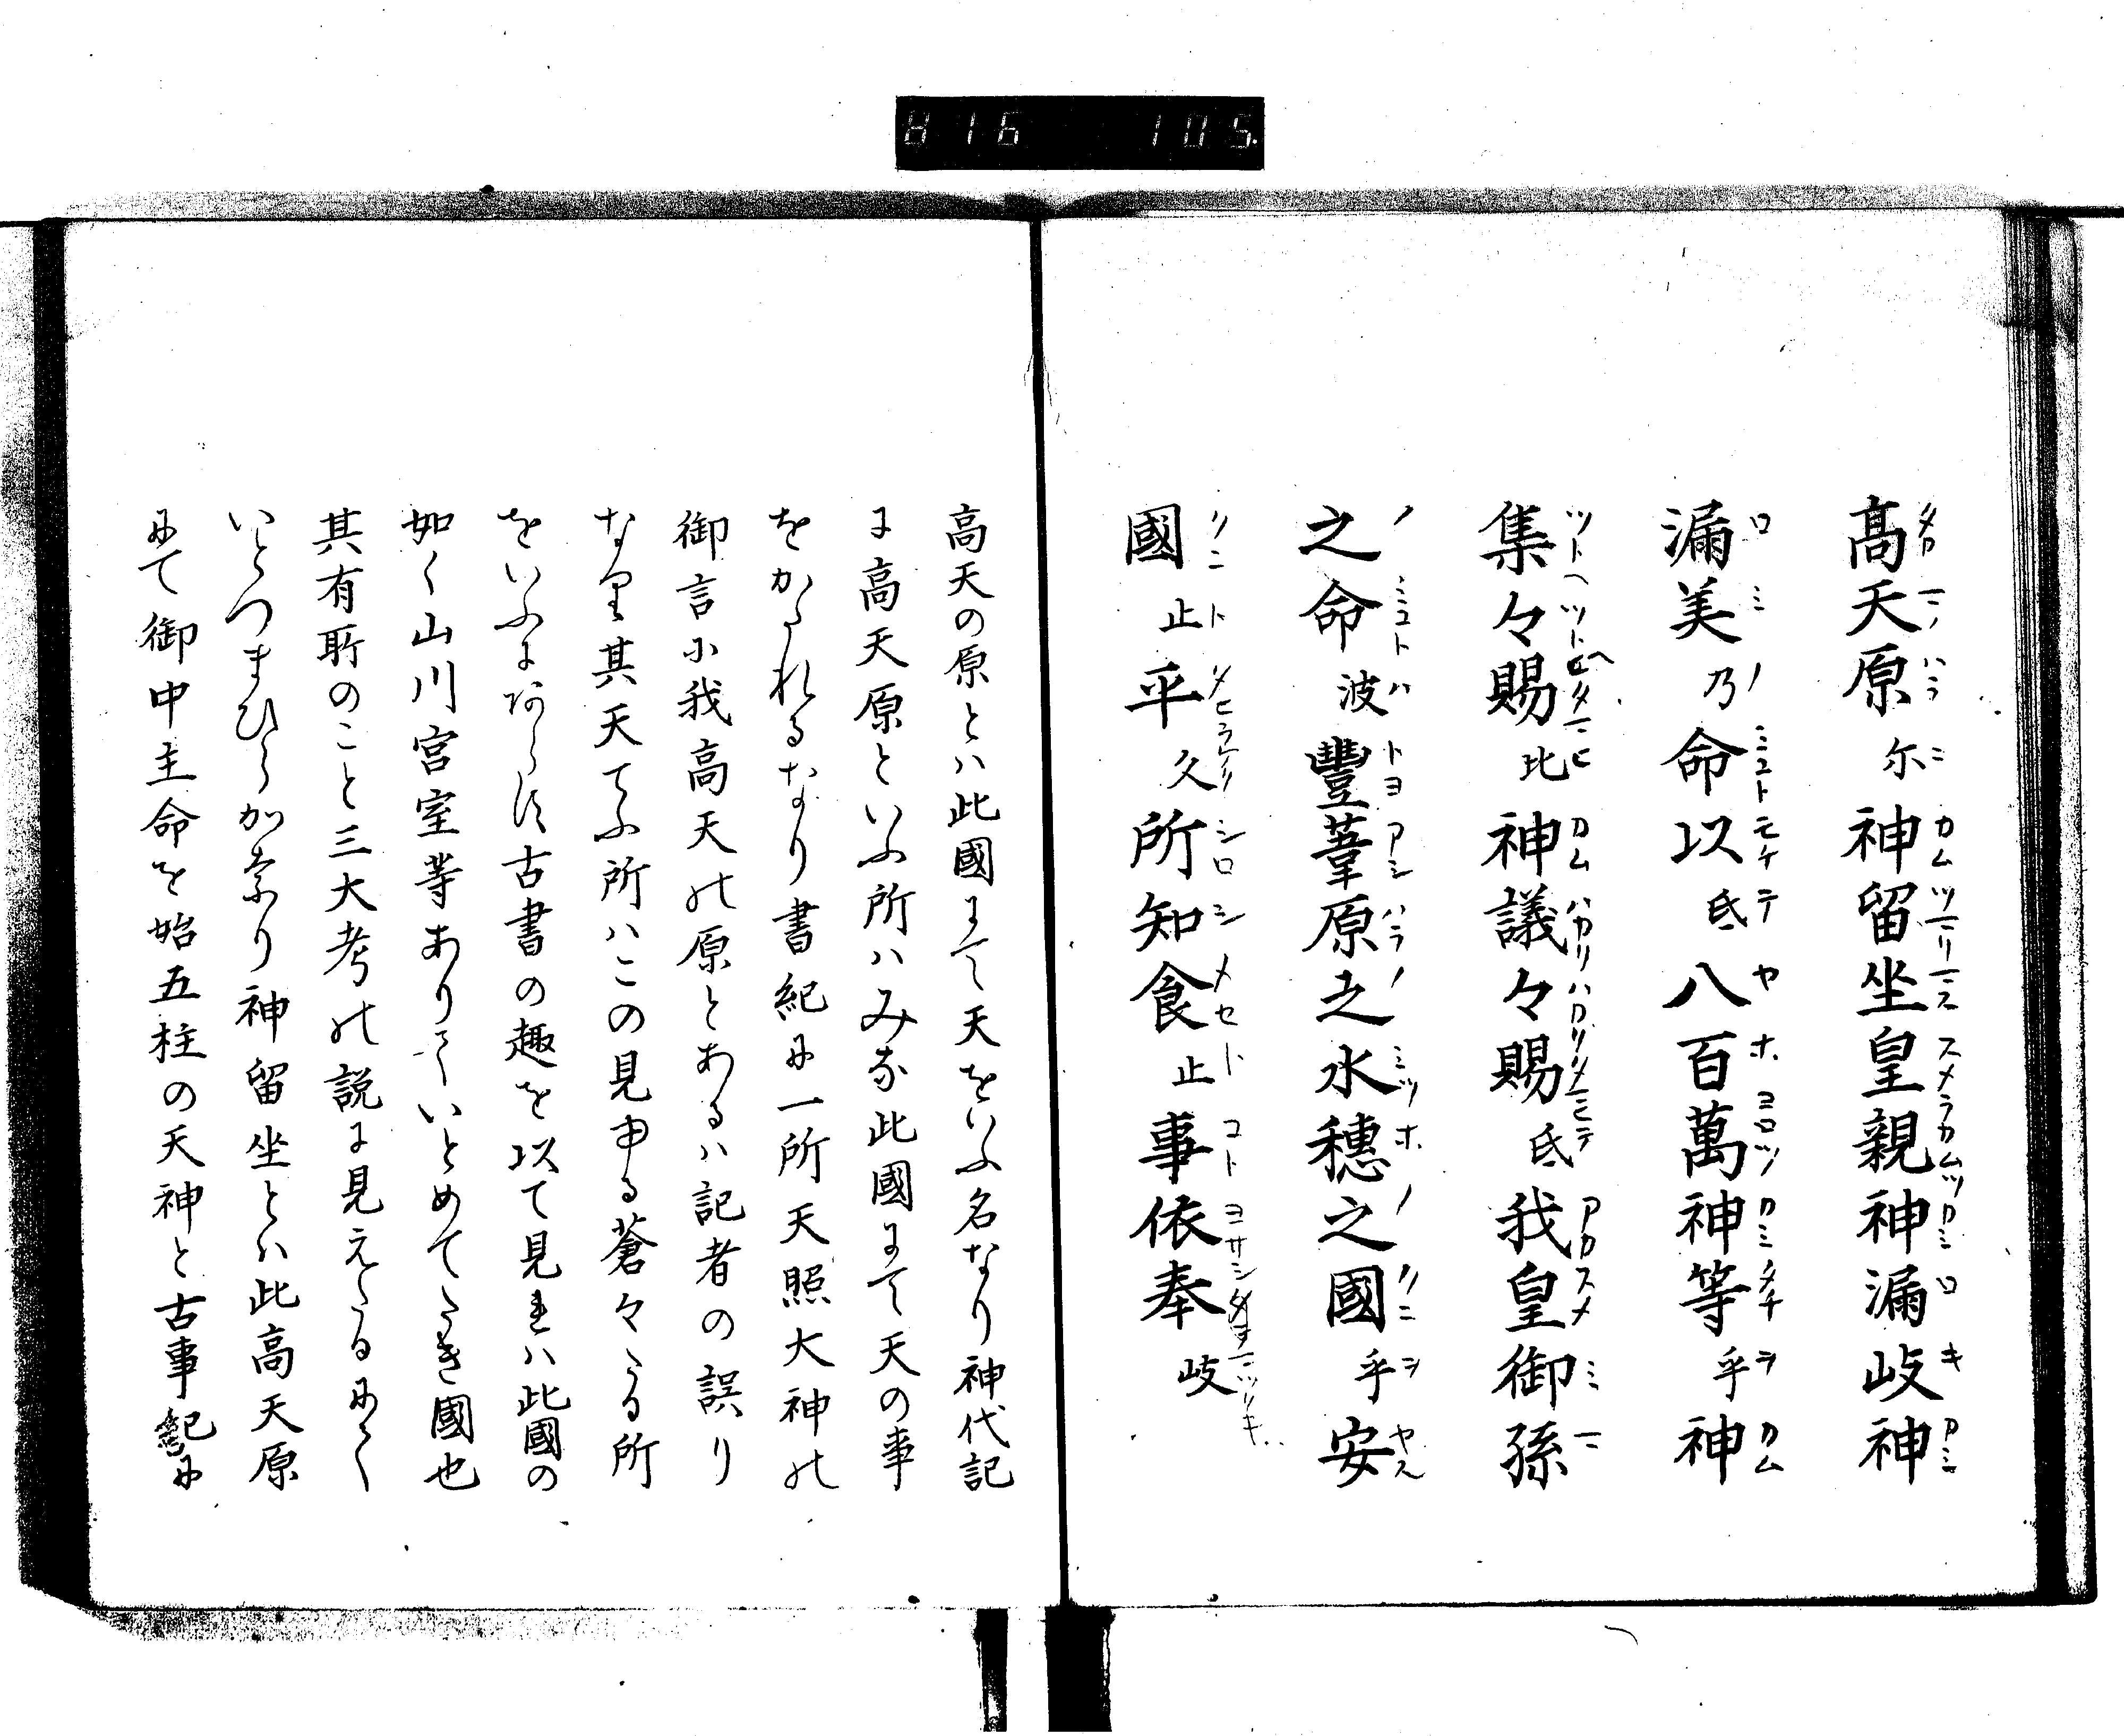 816 105
髙天原尓神留坐皇親神漏岐神
漏美乃命以氐八百萬神等乎神
集々賜比神議々賜氐我皇御孫
之命波豐葦原之水穗之國乎安
國止平久所知食止事依奉岐
高天の原とハ此國にて天をいふ名なり神代記
に高天原といふ所ハみな此國にて天の事
をかゝれるなり書紀に一所天照大神の
御言に我高天の原とあるハ記者の誤り
なり其天てふ所ハこの見申る蒼々たる所
をいふにあらす古書の趣を以て見れハ此國の
如く山川宮室等ありていとめてたき國也
其有所のこと三大考の説に見えたるにて
いとつまひらかなり神留坐とハ此高天原
にて御中主命を始五柱の天神と古事記に